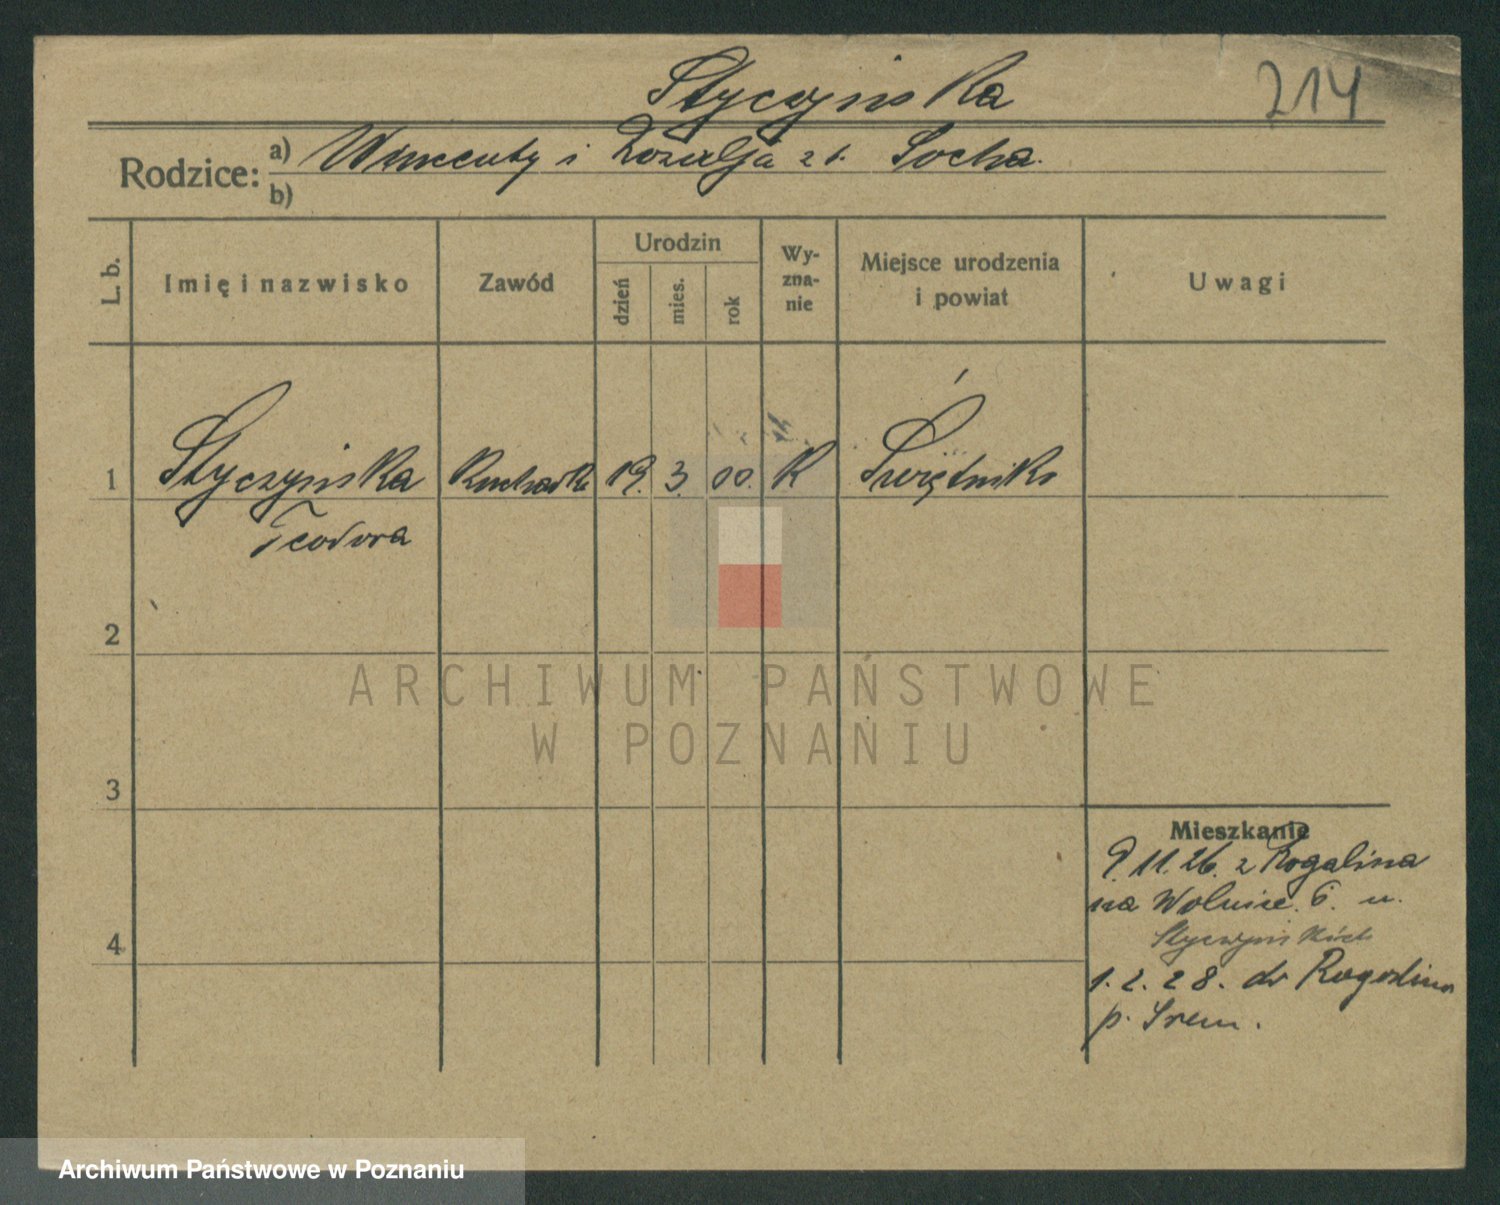 Styczyńska
214
Rodzice: a) Wincenty i Rozalja z d. Socha.
b)
L. b.
Imię i nazwisko
Zawód
Urodzin
dzień
mies.
rok
Wy-
zna-
nie
Miejsce urodzenia
i powiat
Uwagi
1 Styczyńska Kucharka 19. 3. 00. K Świątniki
Teodora
2
ARCHIWUM PAŃSTWOWE
W POZNANIU
3
Mieszkanie
9.11.26. z Rogalina
na Wolnice. 6. u.
Styczyńskich
4
1.2.28. do
p. Śrem.
Archiwum Państwowe w Poznaniu